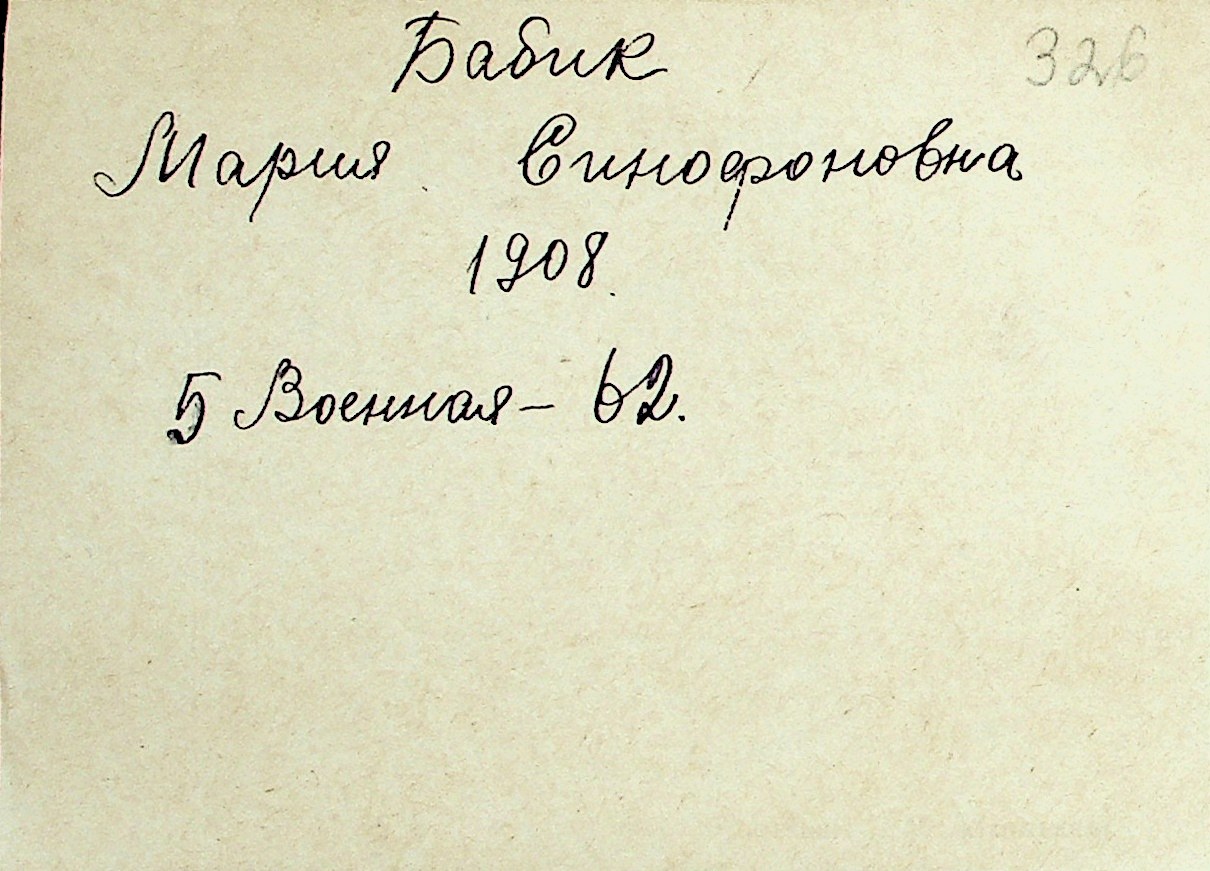 Бабик 326
Мария Синофоновна
1908.
5 Военная – 62.